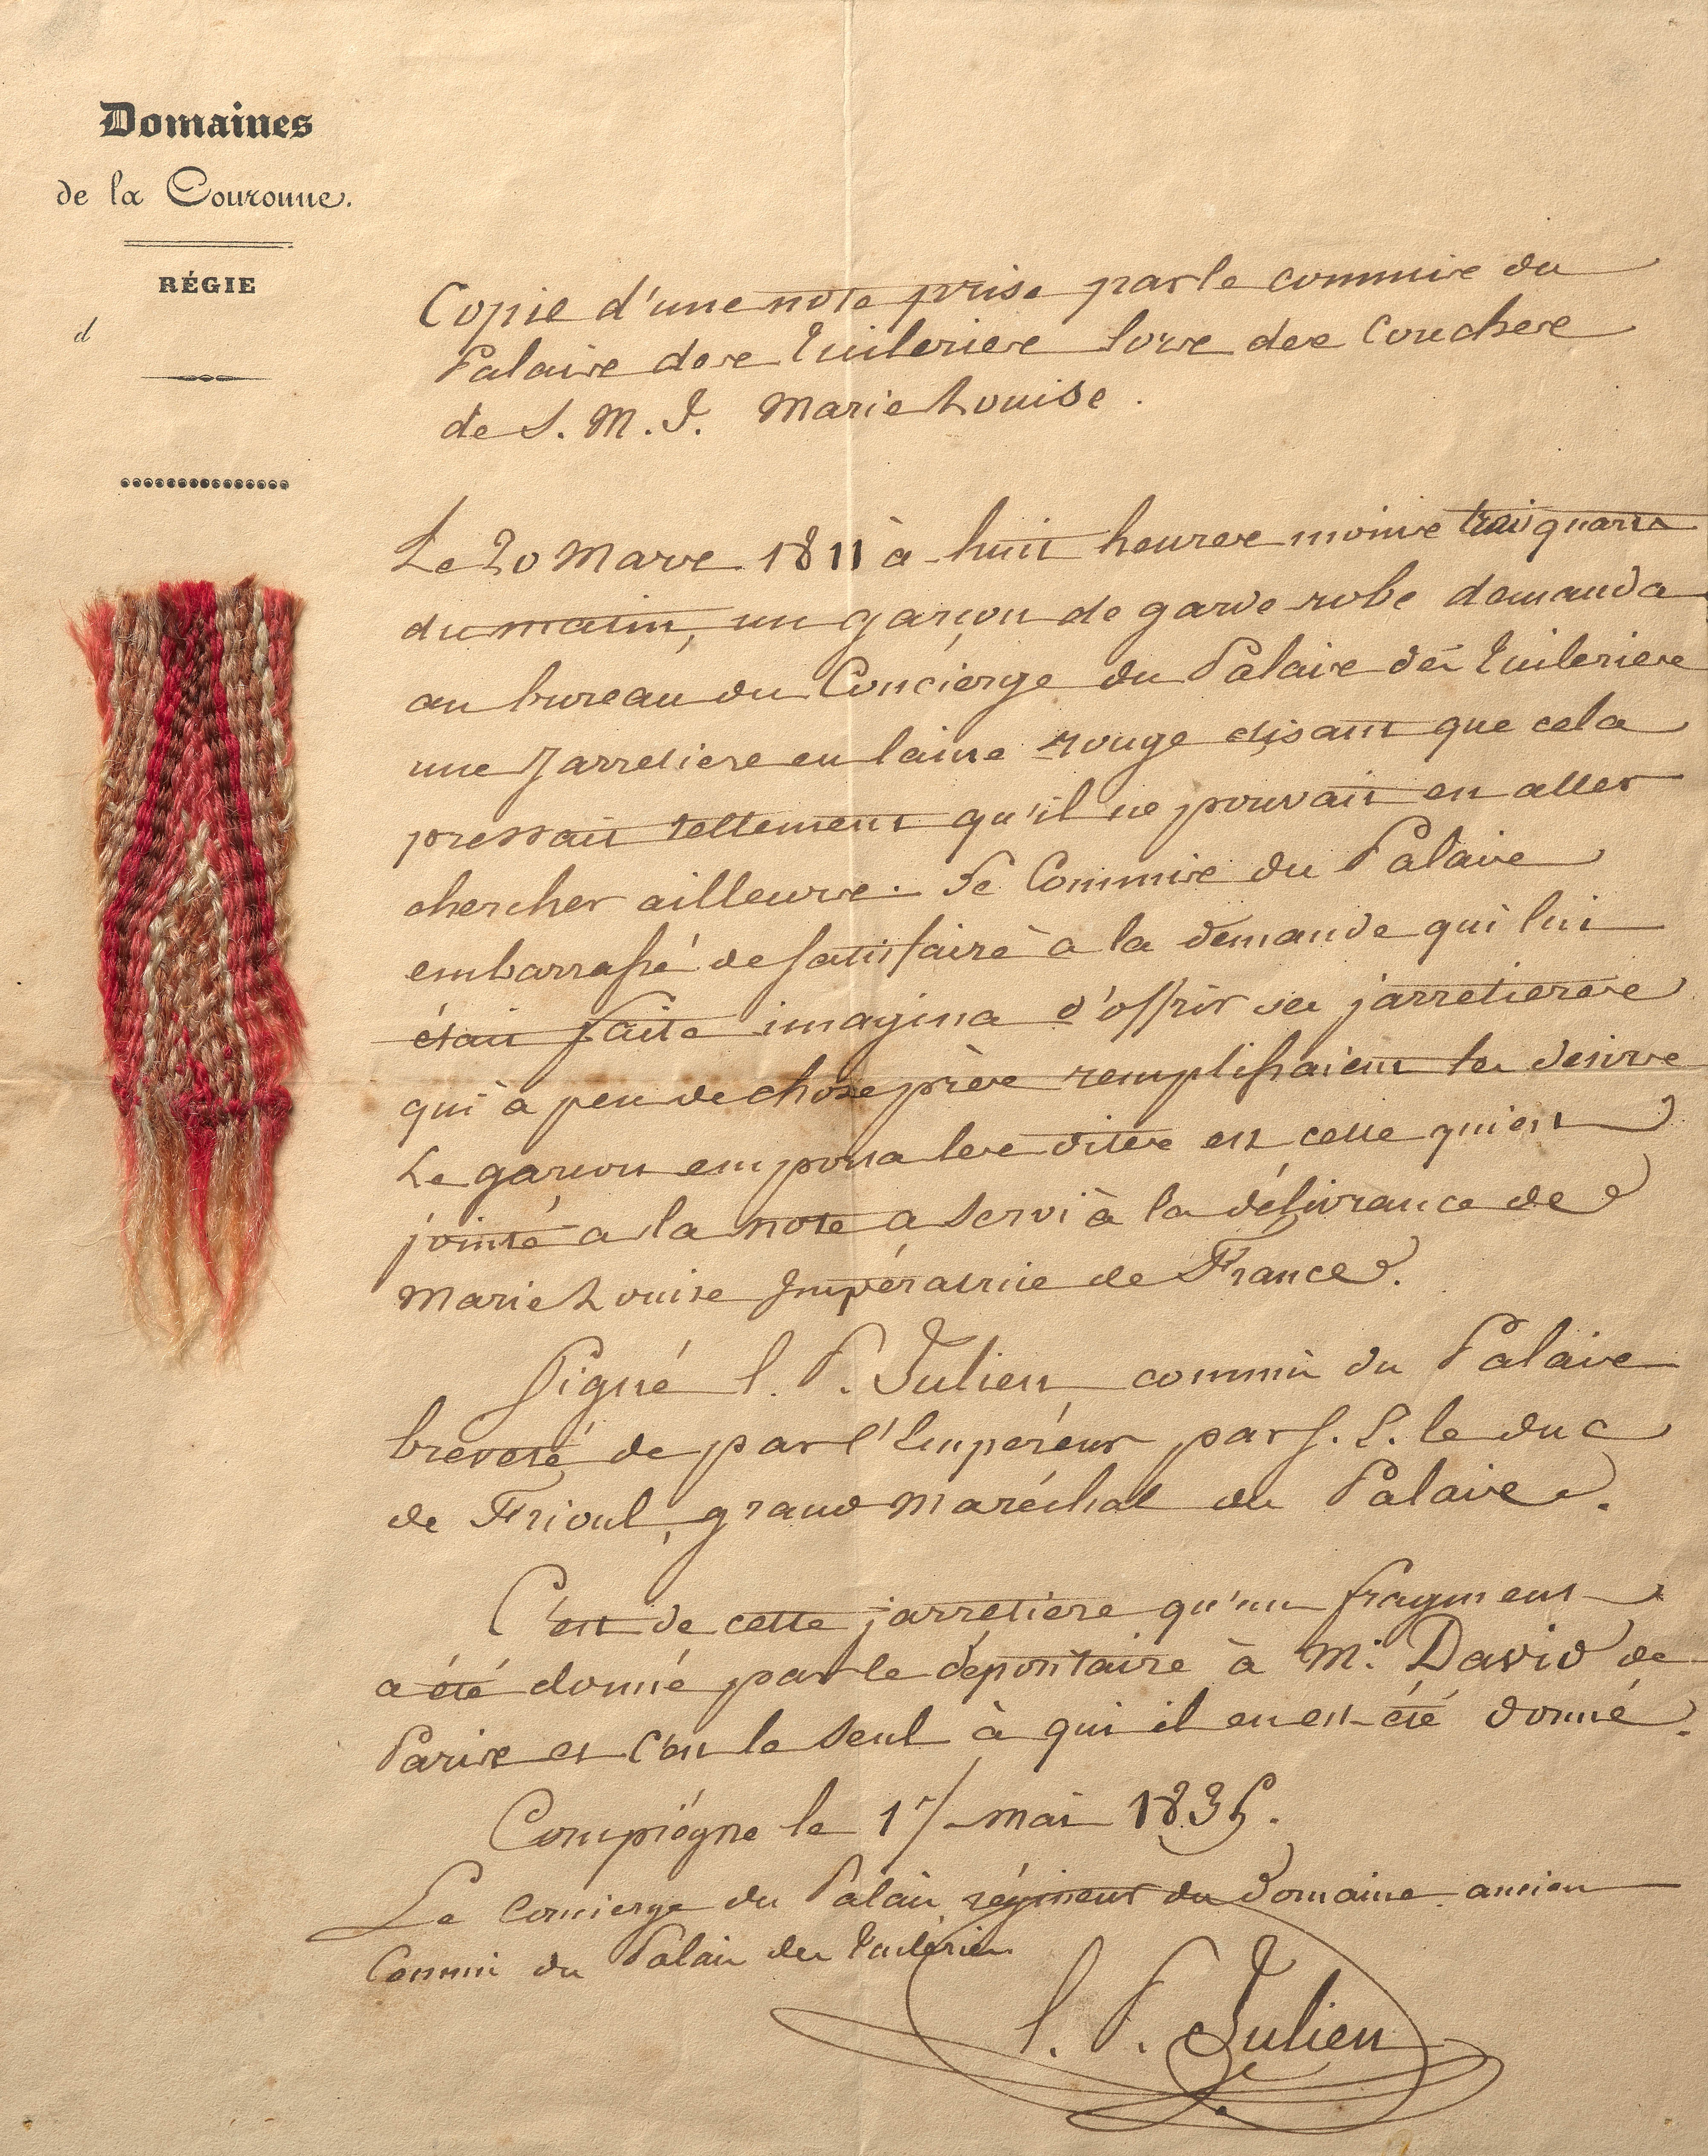 Domaines
de la Couronne.
RÉGIE
d
Copie d'une note prise par le commis du
Palais des Tuileries lors des Couches
de S. M. I. Marie Louise.
Le 20 Mars 1811 à huit heures moins trois quarts
du matin, un garçon de garde robe demanda
au bureau du Concierge du Palais des Tuileries
une Jarretiere en laine rouge disant que cela
pressait tellement qu'il ne pouvait en aller
chercher ailleurs. Le Commis du Palais
embarrassé de satisfaire à la demande qui lui
était faite imagina d'offrir ses jarretieres
qui à peu de chose près remplissaient les desirs
Le garcon emporta les dites et celle qui est
jointe a la note a servi à la délivrance de
Marie Louise Impératrice de France.
Signé l. P. Julien commis du Palais
breveté de par l'Empéreur par S. E. le duc
de Frioul, grand Maréchal du Palais.
C'est de cette jarretiere qu'un fragment
a été donné par le dépositaire à Mr. David de
Paris et c'est le seul à qui il en est été donné.
Compiégne le 17 mai 1835.
Le Concierge du Palais régisseur du Domaine ancien
Commis du Palais des Tuileries
l. P. Julien